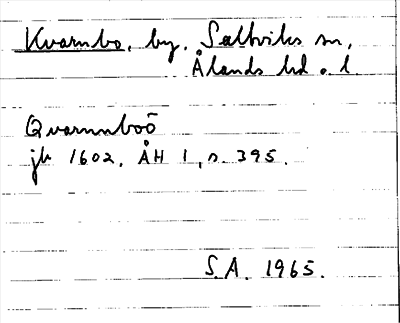 Kvarnbo, by, Saltviks sn,
Ålands hd o. l.
Qvarnnboö
jb 1602, ÅH 1, s. 395.
S.A. 1965.